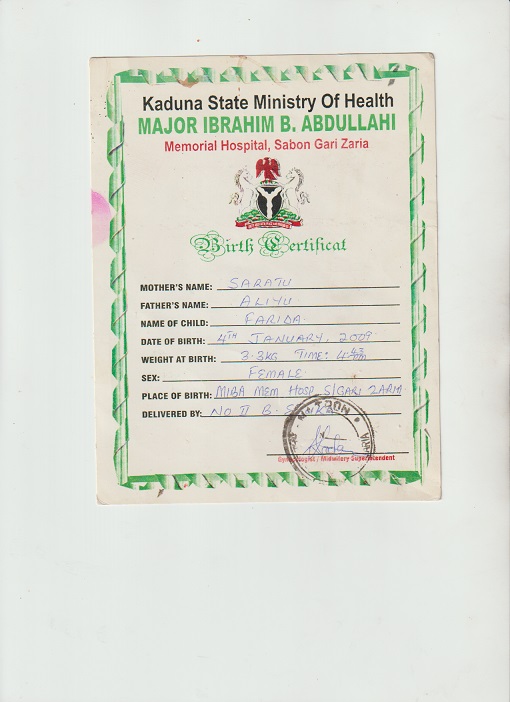 Kaduna State Ministry Of Health
MAJOR IBRAHIM B. ABDULLAHI
Memorial Hospital, Sabon Gari Zaria
Birth Certificat
MOTHER'S NAME: SARATU
FATHER'S NAME: ALIYU
NAME OF CHILD: FARIDA
DATE OF BIRTH: 4TH JANUARY, 2009
WEIGHT AT BIRTH: 3.3KG TIME:
SEX: FEMALE
PLACE OF BIRTH: MIBA MEM HOSP S/GARI ZARIA
DELIVERED BY:
MATRON
Gynecologist / Midwifery Superintendent